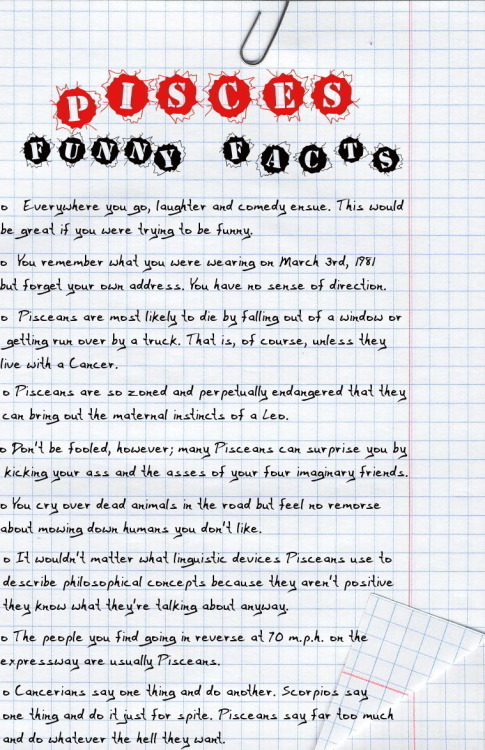 PISCES
FUNNY FACTS
o Everywhere you go, laughter and comedy ensue. This would
be great if you were trying to be funny.
o You remember what you were wearing on March 3rd, 1981
but forget your own address. You have no sense of direction.
o Pisceans are most likely to die by falling out of a window or
getting run over by a truck. That is, of course, unless they
live with a Cancer.
o Pisceans are so zoned and perpetually endangered that they
can bring out the maternal instincts of a Leo.
o Don't be fooled, however; many Pisceans can surprise you by
kicking your ass and the asses of your four imaginary friends.
o You cry over dead animals in the road but feel no remorse
about mowing down humans you don't like.
o It wouldn't matter what linguistic devices Pisceans use to
describe philosophical concepts because they aren't positive
they know what they're talking about anyway.
o The people you find going in reverse at 70 m.p.h. on the
expressway are usually Pisceans.
o Cancerians say one thing and do another. Scorpios say
one thing and do it just for spite. Pisceans say far too much
and do whatever the hell they want.